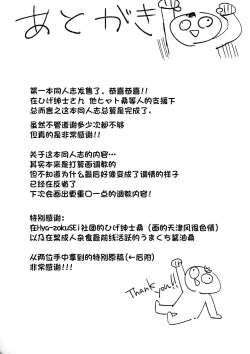 あとがき
第一本同人志发售了、恭喜恭喜!!
在ひげ紳士さん 他ヒャト桑等人的支援下
总而言之这本同人志总算是完成了。
虽然不管道谢多少次都不够
但真的是非常感谢!!
关于这本同人志的内容…
其实本来是打算画调教的
但不知道为什么最后好像变成了调情的样子
已经在反省了
下次会画出更重○一点的调教内容!
特别感谢:
在Hyo-zokuSEI社团的ひげ紳士桑(画的天津风很色情)
以及在繁成人杂食最前线活跃的うまくち醤油桑
从两位手中拿到的特别原稿(←后附)
非常感谢!!!
Thank you!!